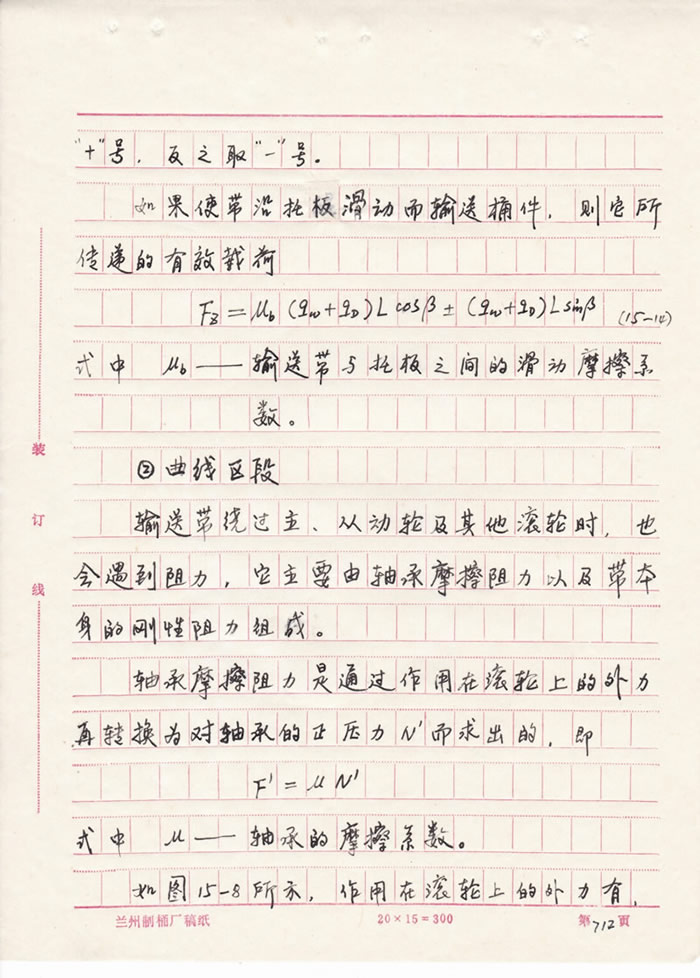 "+"号，反之取"－"号。
如果使带沿托板滑动而输送桶件，则它所
传递的有效载荷
F₃=μb(qw+qD)Lcosβ±(qw+qD)Lsinβ (15-14)
式中 μb——输送带与托板之间的滑动摩擦系
数。
②曲线区段
输送带绕过主、从动轮及其他滚轮时，也
会遇到阻力，它主要由轴承摩擦阻力以及带本
身的刚性阻力组成。
轴承摩擦阻力是通过作用在滚轮上的外力
再转换为对轴承的正压力N'而求出的，即
F'=μN'
式中 μ——轴承的摩擦系数。
如图15-8所示，作用在滚轮上的外力有，
装
订
线
兰州制桶厂稿纸 20×15=300 第712页